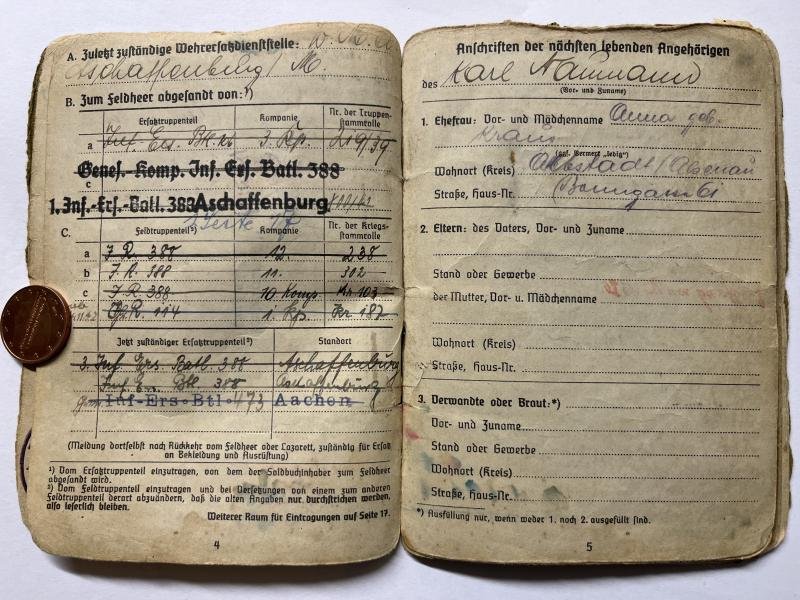 A. Zuletzt zuständige Wehrersatzdienststelle:
Aschaffenburg / M.
B. Zum Feldheer abgesandt von:¹)
Ersatztruppenteil Kompanie Nr. der Truppenstammrolle
a Inf. Ers. Btl. 3. Kp. 219/39
Genes.-Komp. Inf. Ers. Batl. 388
c
1. Inf.-Ers.-Batl. 388 Aschaffenburg
Seite 17
C. Feldtruppenteil²) Kompanie Nr. der Kriegsstammrolle
a J.R. 388 12. 238
b J.R. 388 11. 302
c J.R. 388 10 Komp. Nr 103
R. 114 1. Kp. Nr 187
Jetzt zuständiger Ersatztruppenteil²) Standort
3. Inf. Ers. Batl. 388 Aschaffenburg
Inf. Btl. 388 Aschaffenburg
Inf-Ers-Btl. 473 Aachen
(Meldung dortselbst nach Rückkehr vom Feldheer oder Lazarett, zuständig für Ersatz
an Bekleidung und Ausrüstung)
¹) Vom Ersatztruppenteil einzutragen, von dem der Soldbuchinhaber zum Feldheer
abgesandt wird.
²) Vom Feldtruppenteil einzutragen und bei Versetzungen von einem zum anderen
Feldtruppenteil derart abzuändern, daß die alten Angaben nur durchstrichen werden,
also leserlich bleiben.
Weiterer Raum für Eintragungen auf Seite 17.
4
Anschriften der nächsten lebenden Angehörigen
des Karl Naumann
(Vor- und Zuname)
1. Ehefrau: Vor- und Mädchenname Anna geb.
Kraus
(ggf. Vermerk „ledig")
Wohnort (Kreis) Albstadt/Alzenau
Straße, Haus-Nr.
2. Eltern: des Vaters, Vor- und Zuname
Stand oder Gewerbe
der Mutter, Vor- u. Mädchenname
Wohnort (Kreis)
Straße, Haus-Nr.
3. Verwandte oder Braut:*)
Vor- und Zuname
Stand oder Gewerbe
Wohnort (Kreis)
Straße, Haus-Nr.
*) Ausfüllung nur, wenn weder 1. noch 2. ausgefüllt sind.
5